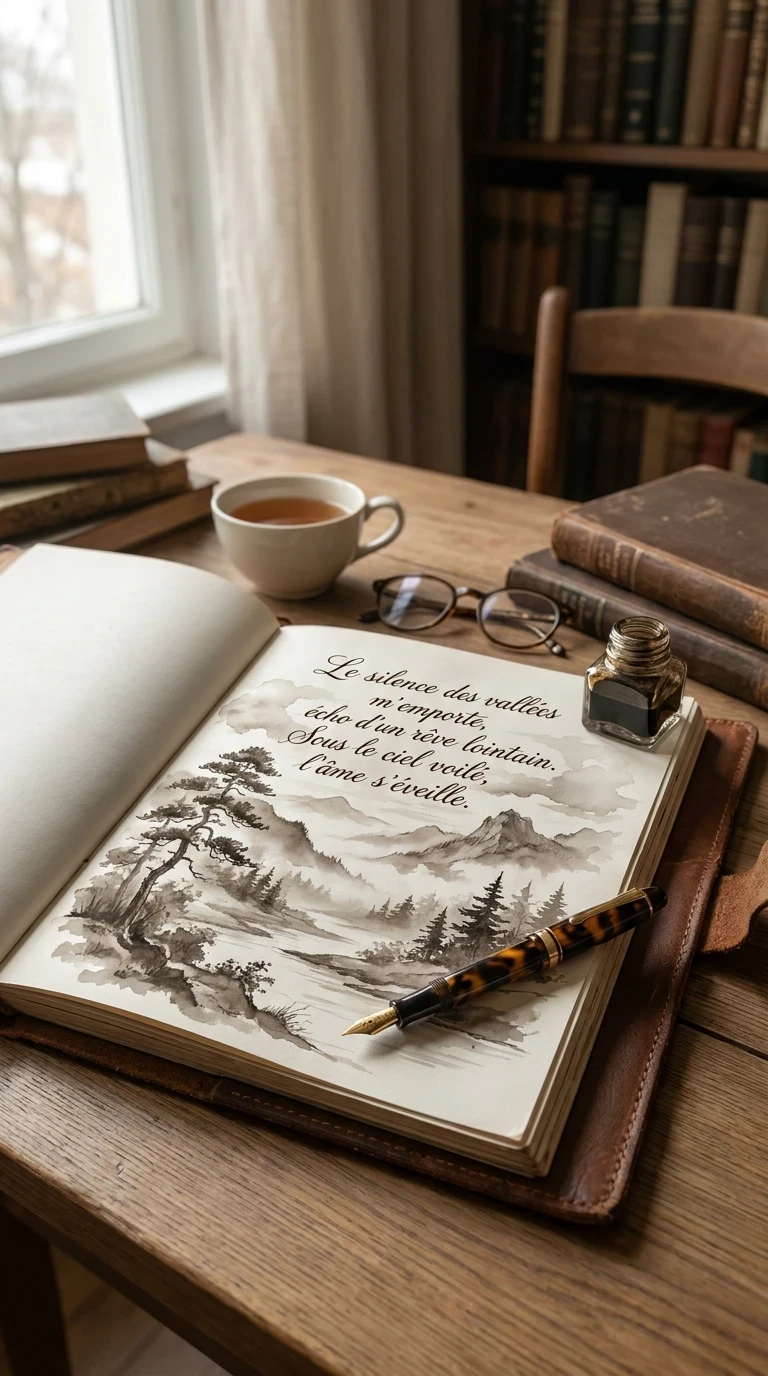 Le silence des vallées
m'emporte,
écho d'un rêve lointain.
Sous le ciel voilé,
l'âme s'éveille.